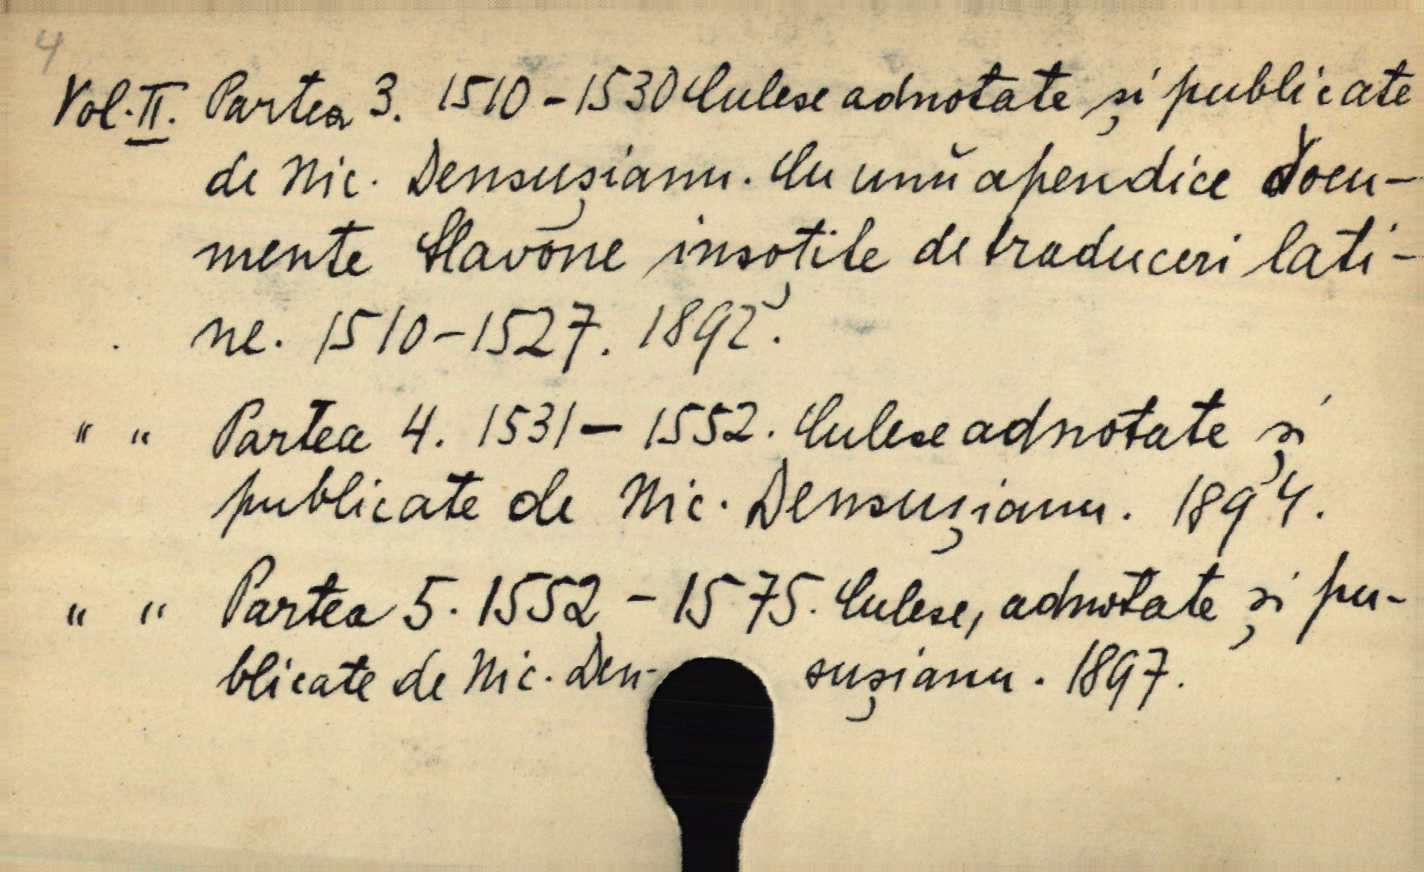 4
Vol. II. Partea 3. 1510-1530 Culese adnotate și publicate
de Nic. Densușianu. Cu unŭ apendice Docu-
mente Slavōne insoțite de traduceri lati-
ne. 1510-1527. 1892.
" " Partea 4. 1531-1552. Culese adnotate și
publicate de Nic. Densușianu. 1894.
" " Partea 5. 1552-1575. Culese, adnotate și pu-
blicate de Nic. Den- sușianu. 1897.